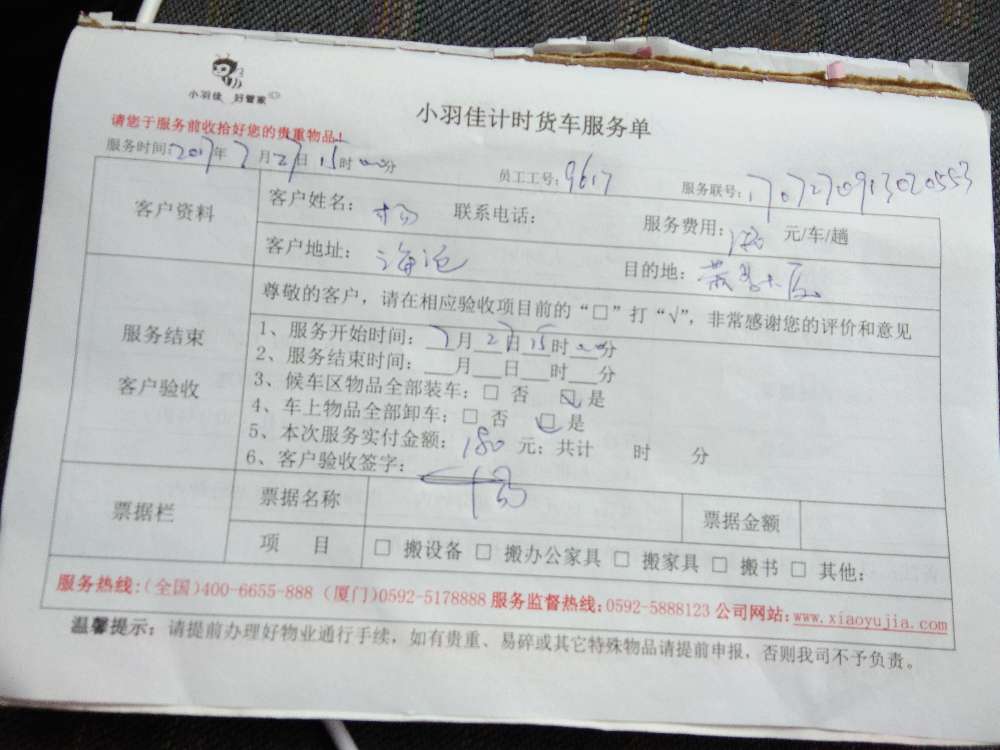 小羽佳 好管家
小羽佳计时货车服务单
请您于服务前收拾好您的贵重物品!
服务时间:2017年7月27日15时00分 员工工号:9617 服务联号:1707270913020553
客户资料
客户姓名: 杨 联系电话: 服务费用:180 元/车/趟
客户地址: 海沧 目的地:
服务结束
客户验收
尊敬的客户，请在相应验收项目前的“□”打“√”，非常感谢您的评价和意见
1、服务开始时间: 7月27日15时00分
2、服务结束时间: ___月___日___时___分
3、候车区物品全部装车: □ 否 ☑ 是
4、车上物品全部卸车: □ 否 ☑ 是
5、本次服务实付金额: 180 元; 共计 时 分
6、客户验收签字:
票据栏
票据名称 票据金额
项 目 □ 搬设备 □ 搬办公家具 □ 搬家具 □ 搬书 □ 其他:
服务热线:(全国)400-6655-888 (厦门)0592-5178888 服务监督热线:0592-5888123 公司网站:www.xiaoyujia.com
温馨提示: 请提前办理好物业通行手续，如有贵重、易碎或其它特殊物品请提前申报，否则我司不予负责。